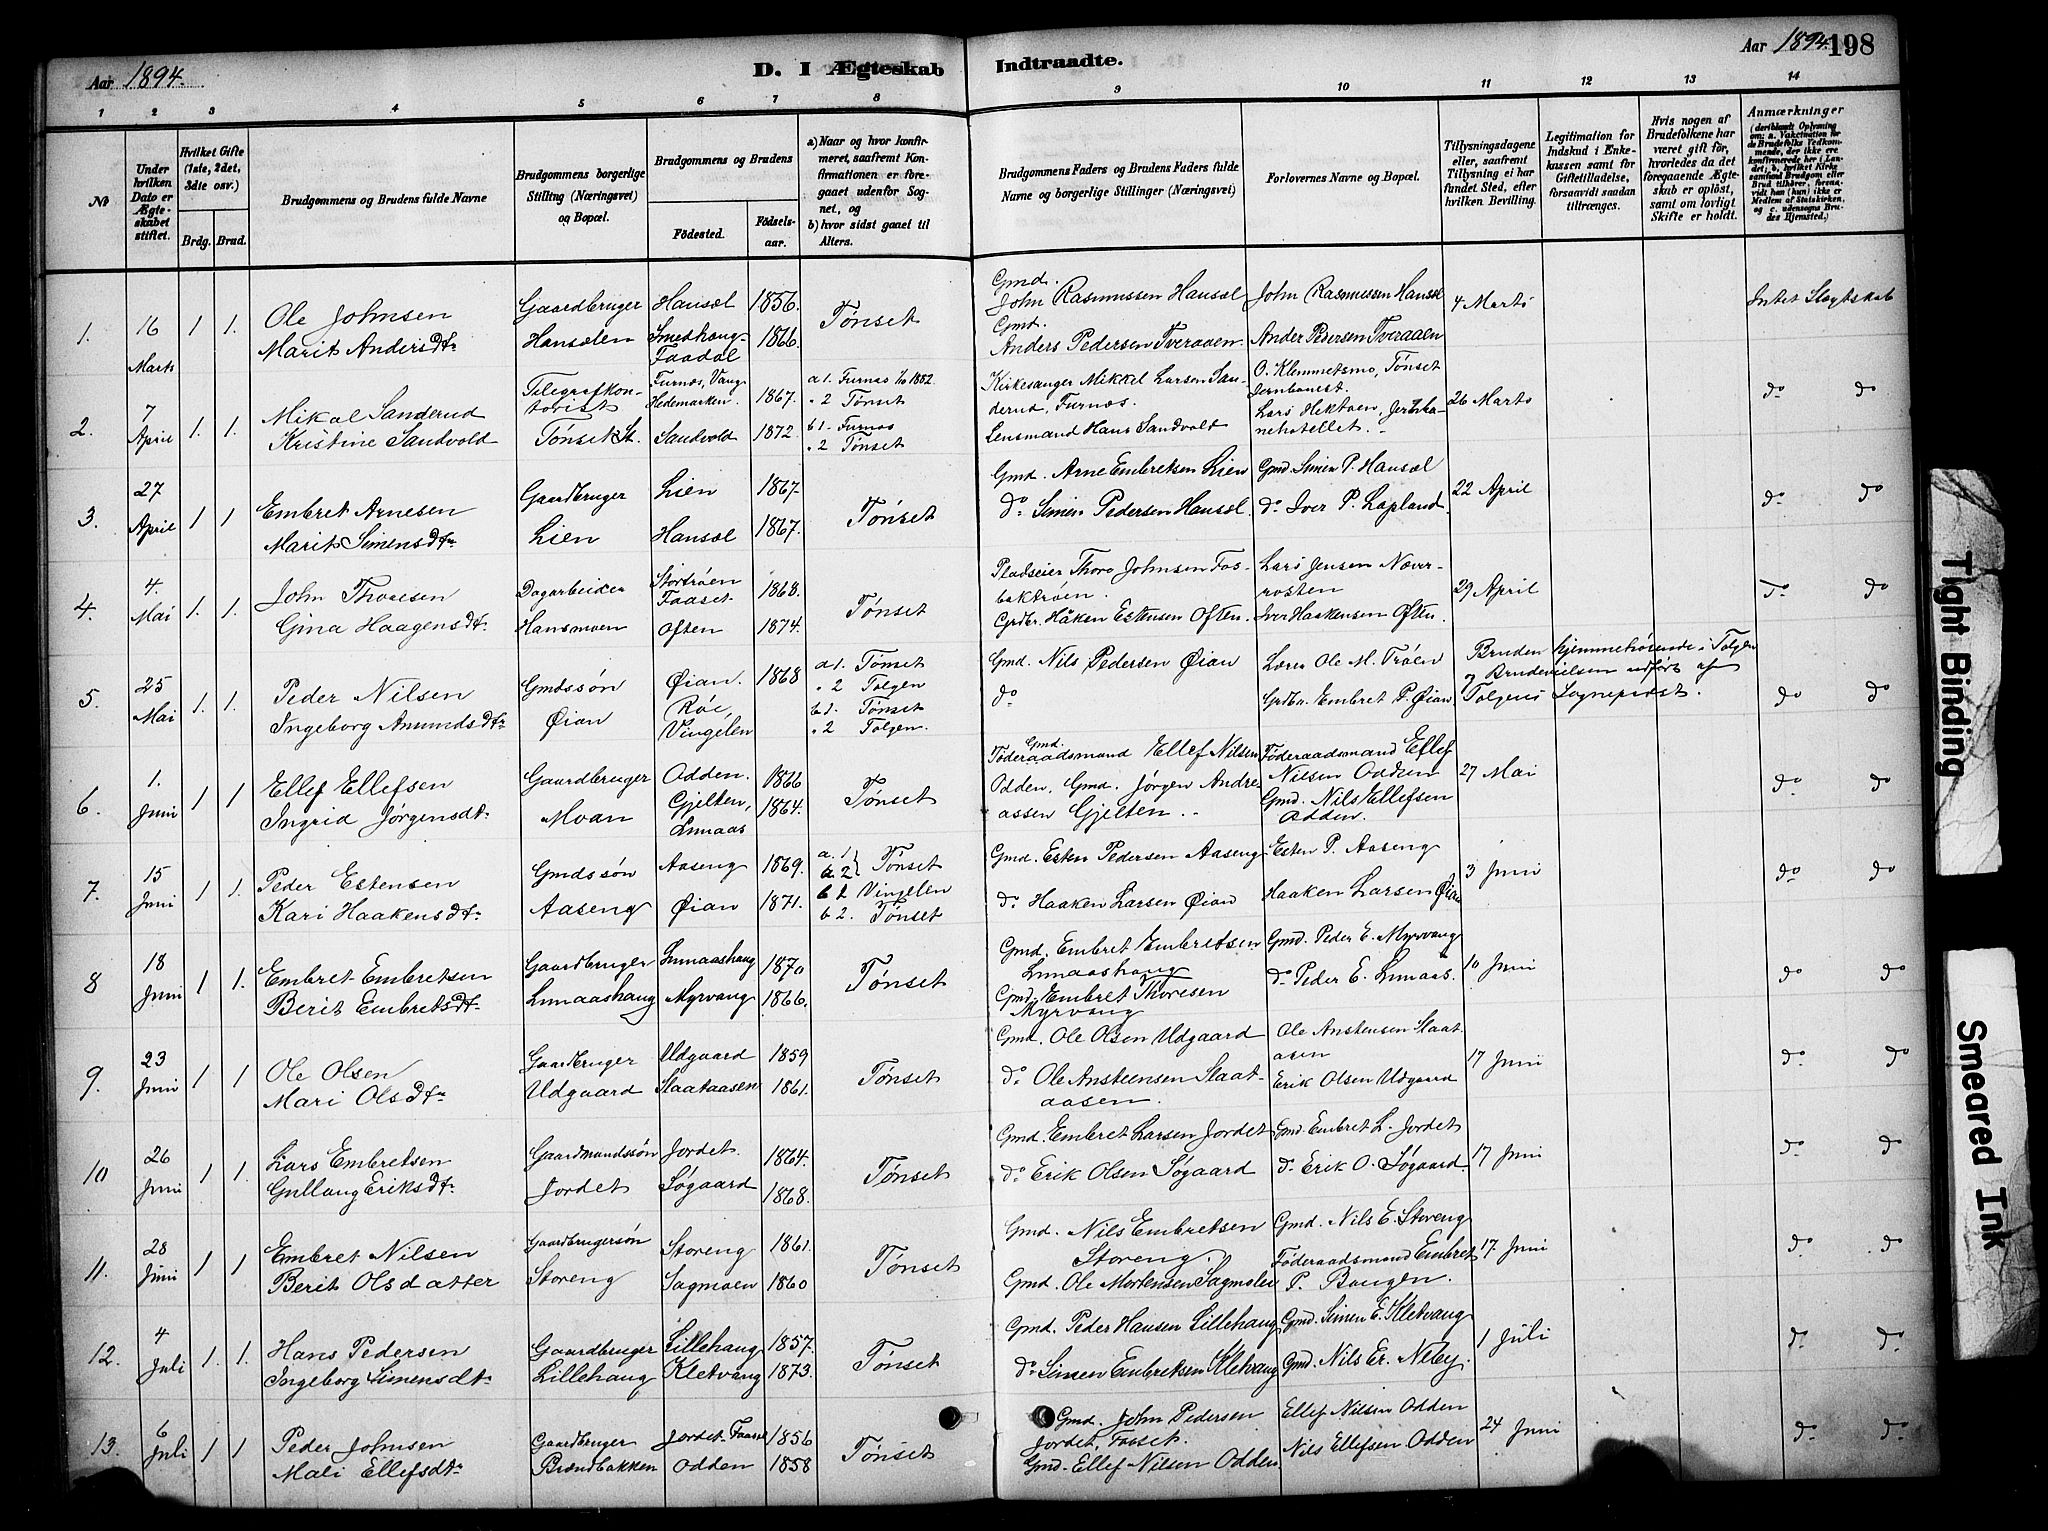 Aar 1894.
D. I Ægteskab Indtraadte.
Aar 1894. 198
1 2 3 4 5 6 7 8 9 10 11 12 13 14
No
Under hvilken Dato er Ægteskabet stiftet.
Hvilket Gifte (1ste, 2det, 3die osv.)
Brdg. Brud.
Brudgommens og Brudens fulde Navne
Brudgommens borgerlige Stilling (Næringsvei) og Bopæl.
Brudgommens og Brudens
Födested. Födselsaar.
a) Naar og hvor konfirmeret, saafremt Konfirmationen er foregaaet udenfor Sognet, og
b) hvor sidst gaaet til Alters.
Brudgommens Faders og Brudens Faders fulde Navne og borgerlige Stillinger (Næringsvei)
Forlovernes Navne og Bopæl.
Tillysningsdagene eller, saafremt Tillysning ei har fundet Sted, efter hvilken Bevilling.
Legitimation for Indskud i Enkekassen samt for Giftetilladelse, forsaavidt saadan tiltrænges.
Hvis nogen af Brudefolkene har været gift för, hvorledes da det foregaaende Ægteskab er oplöst, samt om lovligt Skifte er holdt.
Anmærkninger
1. 16 Marts 1 1. Ole Johnsen Gaardbruger Hansæl 1856. Tønset Gmd. John Rasmussen Hansæl John Rasmussen Hansæl 4 Marts Intet Slegtskab
Marit Andersdtr Hansælen Smedhaug Faadal 1866. Gmd. Anders Pedersen Tveraaen Ander Pedersen Tveraaen
2. 7 April 1. 1. Mikal Sanderud Telegrafkontorist Furnæs, Vang Hedemarken. 1867. a 1. Furnæs 1/10 1882. " 2 Tønset Kirkesanger Mikkel Larsen Sanderud, Furnæs. O. Klemmetsmo, Tønset Jernbanest. 26 Marts do do
Kristine Sandvold Tønset St. Sandvold 1872. b 1. Furnæs " 2 Tønset Lensmand Hans Sandvold Lars Hektoen, Jernbanehotellet.
3. 27 April 1 1 Embret Arnesen Gaardbruger Lien 1867. Tønset Gmd. Arne Embretsen Lien Gmd. Simen P. Hansæl 22 April do do
Marit Simensdtr Lien Hansæl 1867. do Simen Pedersen Hansæl. do Iver P. Lapland.
4. 4. Mai 1. 1. John Thoresen Dagarbeider Stortrøen Faaset 1868. Tønset Pladseier Thore Johnsen Fosbaktrøen. Lars Jensen Næverrosten 29 April do do
Gina Haagensdtr. Hansmoen Often 1874. Grdbr. Håken Estensen Often. Iver Haakensen Often.
5. 25 Mai 1. 1. Peder Nilsen Gmdssön Øian. 1868 a 1. Tønset " 2 Tolgen Gmd. Nils Pedersen Øian Lærer Ole M. Trøen Bruden hjemmehørende i Tolgen
Ingeborg Amundsdtr Øian Røe, Vingelen b 1. Tønset " 2 Tolgen. do Grdbr. Embret P. Øian og Brudevielsen udført af Tolgens Sogneprest. do do
6. 1. Juni 1 1 Ellef Ellefsen Gaardbruger Odden. 1866 Tønset Gmd. Føderaadsmand Ellef Nilsen Odden, Føderaadsmand Ellef Nilsen Odden 27 Mai do do
Ingrid Jørgensdtr. Moan Gjelten, Lnnaas 1864. Gmd. Jørgen Andreassen Gjelten. Gmd. Nils Ellefsen Odden.
7. 15 Juni 1 1. Peder Estensen Gmdssøn Aaseng 1869. a. 1 a 2 } Tønset Gmd. Esten Pedersen Aaseng Esten P. Aaseng 3 Juni do do
Kari Haakensdtr. Aaseng Øian 1871. b 1 Vingelen b 2. Tønset do Haaken Larsen Øian Haaken Larsen Øian
8 18 Juni 1 1. Embret Embretsen Gaardbruger Lnnaashaug 1870 Tønset Gmd. Embret Embretsen Lnnaashaug Gmd. Peder E. Myrvang 10 Juni do do
Berit Embretsdtr. Lnnaashaug Myrvang 1866. Gmd. Embret Thoresen Myrvang do Peder E. Lnnaas.
9 23 Juni 1 1 Ole Olsen Gaardbruger Udgaard 1859 Tønset Gmd. Ole Olsen Udgaard Ole Anstensen Slaataasen 17 Juni do do
Mari Olsdtr Udgaard Slaataasen 1861. do Ole Ansteensen Slaataasen. Erik Olsen Udgaard
10 26 Juni 1 1. Lars Embretsen Gaardmandssøn Jordet. 1864. Tønset Gmd. Embret Larsen Jordet Gmd. Embret L. Jordet 17 Juni do do
Gullaug Eriksdtr. Jordet Søgaard 1868. do Erik Olsen Søgaard do Erik O. Søgaard.
11. 28 Juni 1 1 Embret Nilsen Gaardbrugersøn Storeng 1861. Tønset Gmd. Nils Embretsen Storeng. Gmd. Nils E. Storeng 17. Juni do do
Berit Olsdatter Storeng Sagmoen 1860 Gmd. Ole Mortensen Sagmoen Føderaadsmand Embret P. Bangen.
12. 4 Juli 1. 1. Hans Pedersen Gaardbruger Lillehaug 1857. Tønset Gmd. Peder Hansen Lillehaug Gmd. Simen E. Kletvang 1 Juli do do
Ingeborg Simensdtr Lillehaug Kletvang 1873. do Simen Embretsen Kletvang Gmd. Nils Er. Neby.
13. 6 Juli 1 1 Peder Johnsen Gaardbruger Jordet Faaset 1856 Tønset Gmd. John Pedersen Jordet, Faaset. Ellef Nilsen Odden 24 Juni do do
Mali Ellefsdtr Brændbakken Odden 1858 Gmd. Ellef Nilsen Odden. Nils Ellefsen Odden
Tight Binding
Smeared Ink